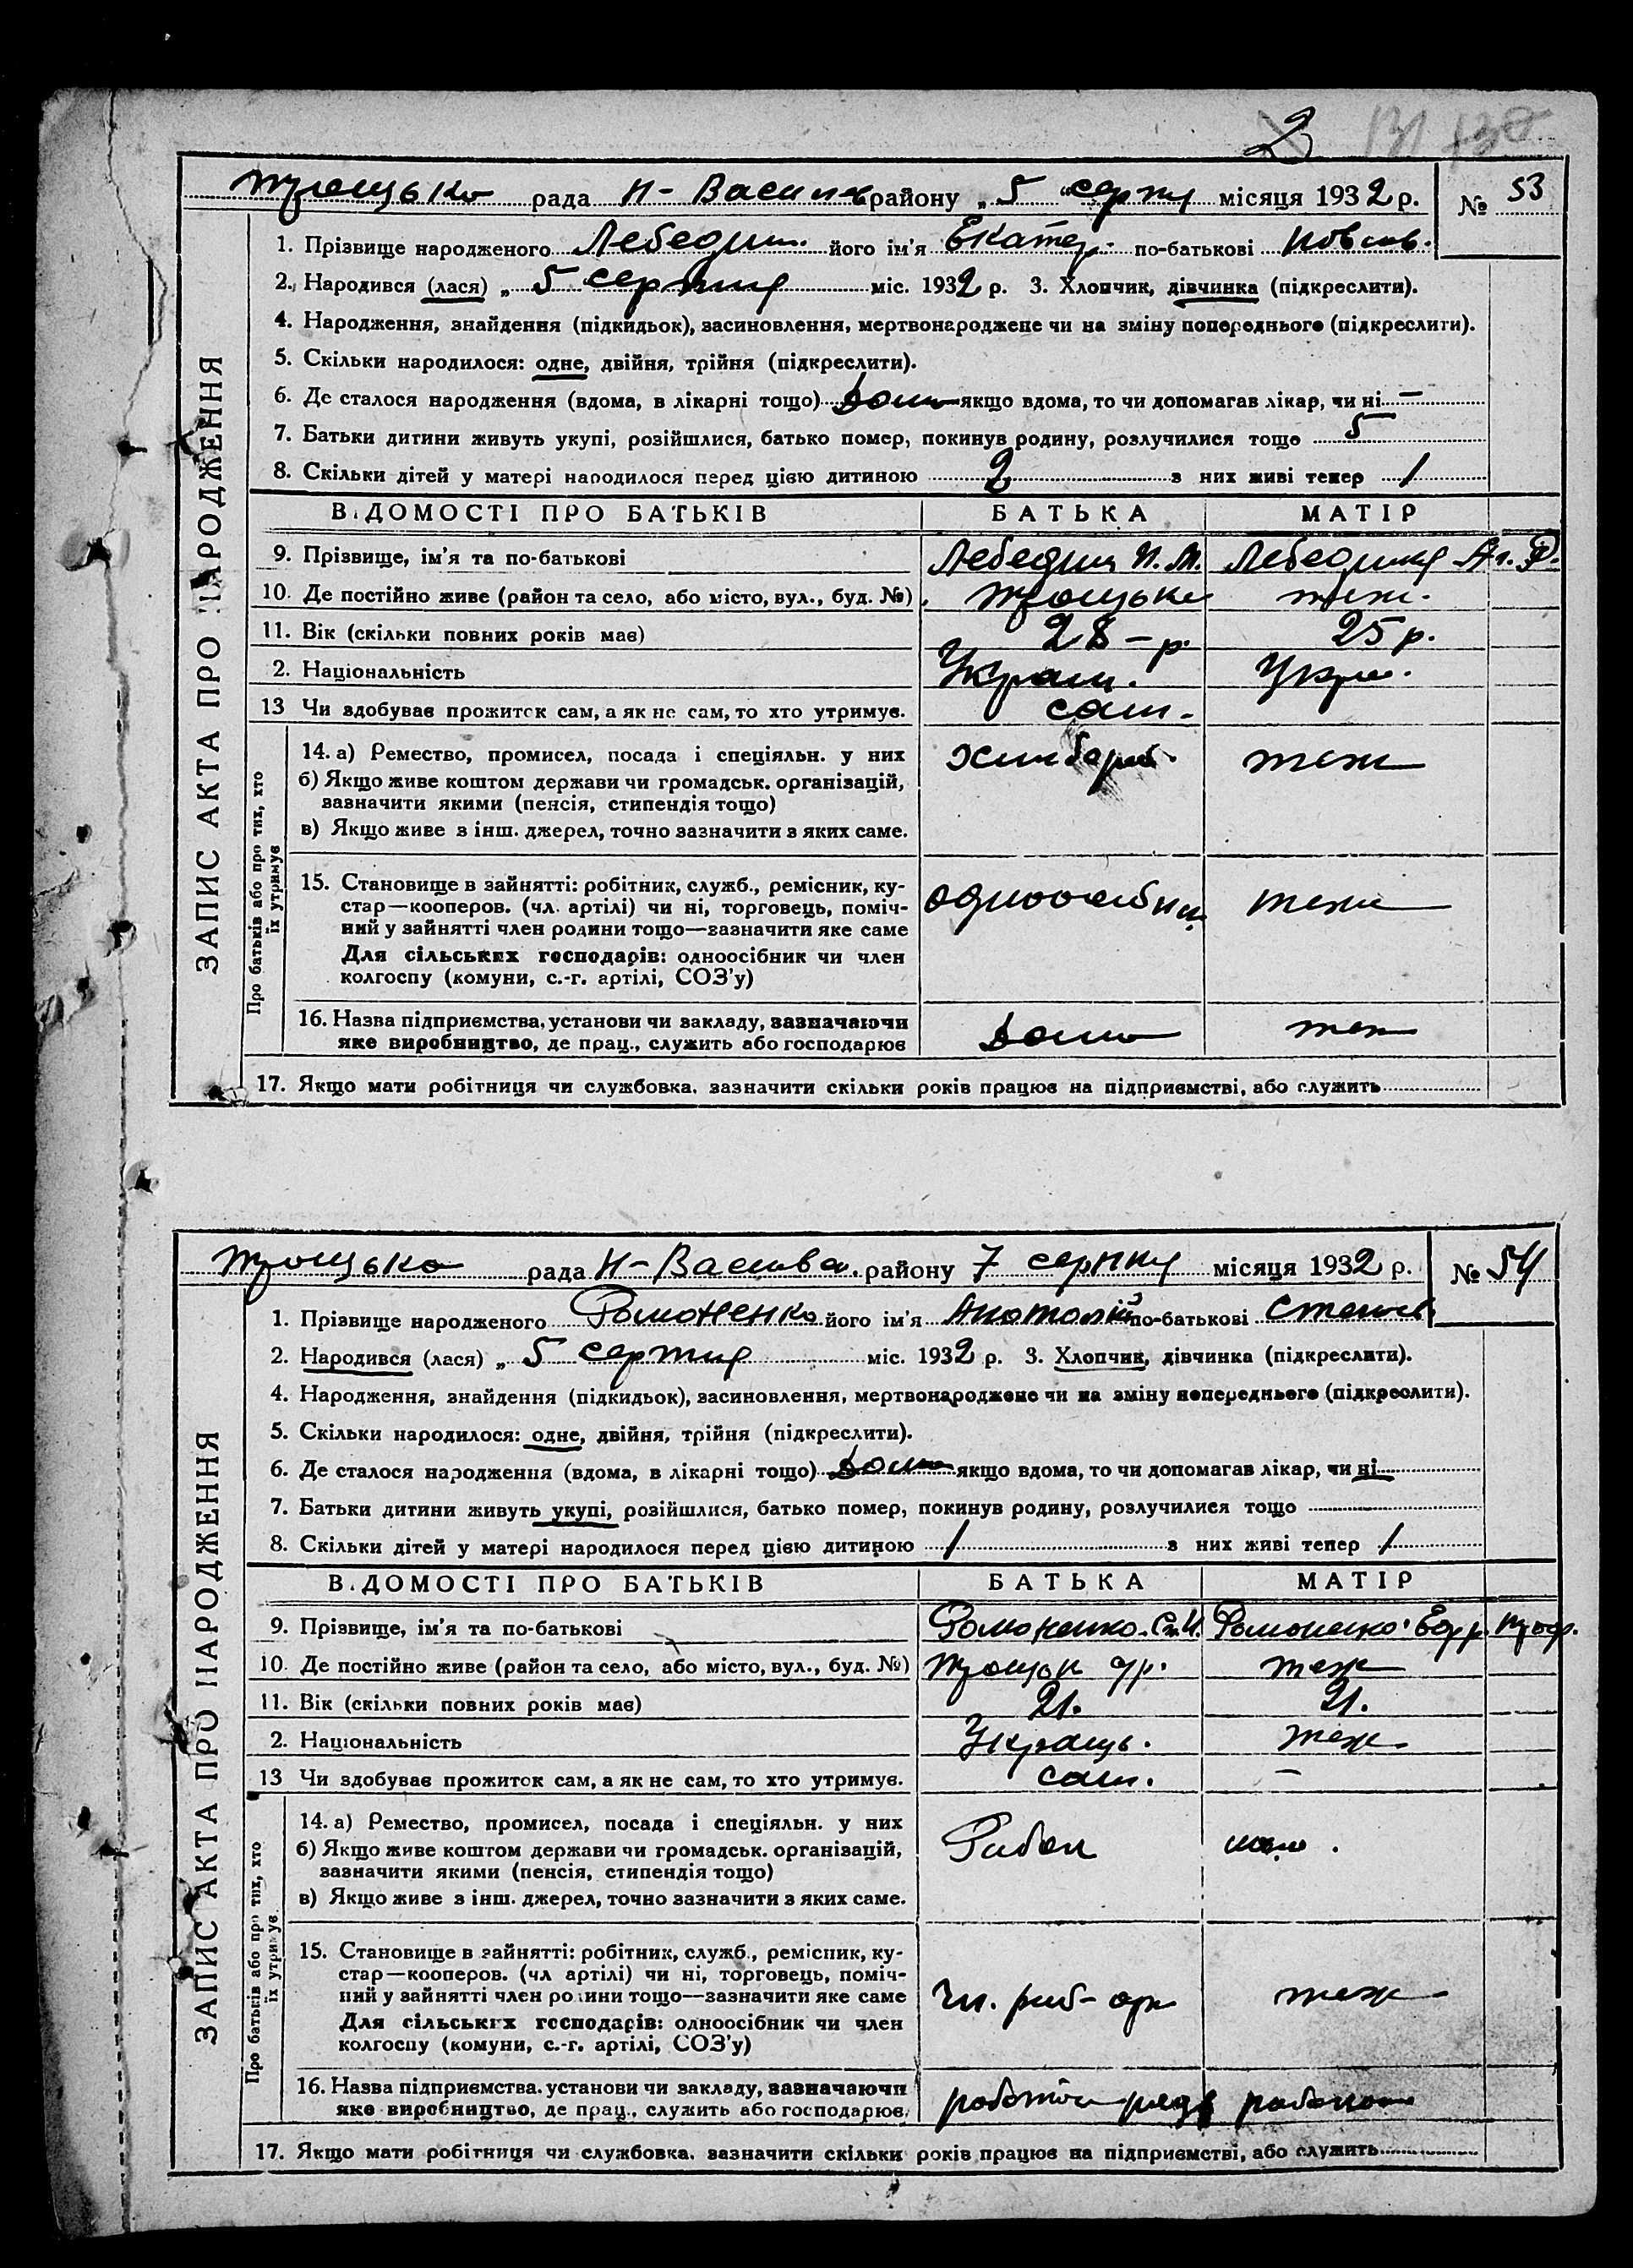 2 131 138
Троцько рада Н-Васил районy „5“ серпн місяця 1932 р. № 53
1. Прізвище народженого Лебедин. його ім'я Екатер. по-батькові Повлов.
2. Народився (лася) „ 5 серпня міс. 1932 р. 3. Хлопчик, дівчинка (підкреслити).
4. Народження, знайдення (підкидьок), засиновлення, мертвонароджене чи на зміну попереднього (підкреслити).
5. Скільки народилося: одне, двійня, трійня (підкреслити).
6. Де сталося народження (вдома, в лікарні тощо) Дома якщо вдома, то чи допомагав лікар, чи ні —
7. Батьки дитини живуть укупі, розійшлися, батько помер, покинув родину, розлучилися тощо 5
8. Скільки дітей у матері народилося перед цією дитиною 2 з них живі тепер 1
ЗАПИС АКТА ПРО НАРОДЖЕННЯ
ВІДОМОСТІ ПРО БАТЬКІВ БАТЬКА МАТІР
9. Прізвище, ім'я та по-батькові Лебедин П. М. Лебедина Аг. Ф.
10. Де постійно живе (район та село, або місто, вул., буд. №) Троцьке теж.
11. Вік (скільки повних років має) 28 – р. 25 р.
2. Національність Украин. Укра.
13 Чи здобуває прожиток сам, а як не сам, то хто утримує. сам.
Про батьків або про тих, хто їх утримує
14. а) Ремество, промисел, посада і спеціяльн. у них хлибороб. теж
б) Якщо живе коштом держави чи громадськ. організацій,
зазначити якими (пенсія, стипендія тощо)
в) Якщо живе з інш. джерел, точно зазначити з яких саме.
15. Становище в зайнятті: робітник, служб., ремісник, ку-
стар—кооперов. (чл. артілі) чи ні, торговець, поміч- одноосибниц теж
ний у зайнятті член родини тощо—зазначити яке саме
Для сільських господарів: одноосібник чи член
колгоспу (комуни, с.-г. артілі, СОЗ'у)
16. Назва підприємства, установи чи закладу, зазначаючи Дома теж
яке виробництво, де прац., служить або господарює
17. Якщо мати робітниця чи службовка, зазначити скільки років працює на підприємстві, або служить
Троцько рада Н-Васильев. району 7 серпня місяця 1932 р. № 54
1. Прізвище народженого Романенко його ім'я Анатолій по-батькові Степов.
2. Народився (лася) „ 5 серпня міс. 1932 р. 3. Хлопчик, дівчинка (підкреслити).
4. Народження, знайдення (підкидьок), засиновлення, мертвонароджене чи на зміну попереднього (підкреслити).
5. Скільки народилося: одне, двійня, трійня (підкреслити).
6. Де сталося народження (вдома, в лікарні тощо) Дома якщо вдома, то чи допомагав лікар, чи ні
7. Батьки дитини живуть укупі, розійшлися, батько помер, покинув родину, розлучилися тощо
8. Скільки дітей у матері народилося перед цією дитиною 1 з них живі тепер 1
ЗАПИС АКТА ПРО НАРОДЖЕННЯ
ВІДОМОСТІ ПРО БАТЬКІВ БАТЬКА МАТІР
9. Прізвище, ім'я та по-батькові Романенко. Ст. Романенко
10. Де постійно живе (район та село, або місто, вул., буд. №) теж
11. Вік (скільки повних років має) 21. 21.
2. Національність Українць. теж
13 Чи здобуває прожиток сам, а як не сам, то хто утримує. сам. –
Про батьків або про тих, хто їх утримує
14. а) Ремество, промисел, посада і спеціяльн. у них
б) Якщо живе коштом держави чи громадськ. організацій,
зазначити якими (пенсія, стипендія тощо)
в) Якщо живе з інш. джерел, точно зазначити з яких саме.
15. Становище в зайнятті: робітник, служб., ремісник, ку-
стар—кооперов. (чл артілі) чи ні, торговець, поміч-
ний у зайнятті член родини тощо—зазначити яке саме Чл. теж
Для сільських господарів: одноосібник чи член
колгоспу (комуни, с.-г. артілі, СОЗ'у)
16. Назва підприємства, установи чи закладу, зазначаючи
яке виробництво, де прац., служить або господарює
17. Якщо мати робітниця чи службовка, зазначити скільки років працює на підприємстві, або служить